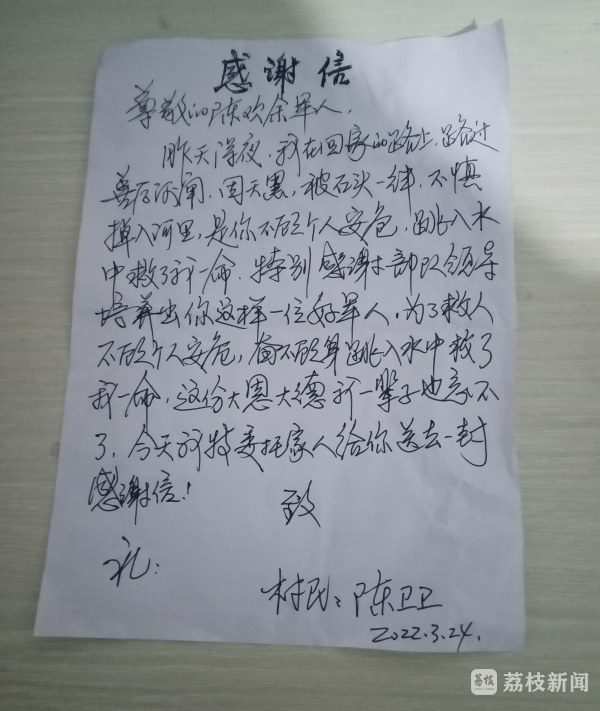 感谢信
尊敬的陈欢余军人,
昨天深夜,我在回家的路上,路过
善后河闸,因天黑,被石头一绊,不慎
掉入河里,是你不顾个人安危,跳入水
中救了我一命.特别感谢部队领导
培养出你这样一位好军人,为了救人
不顾个人安危,奋不顾身跳入水中救了
我一命,这份大恩大德我一辈子也忘不
了,今天我特委托家人给你送去一封
感谢信!
致
礼:
村民:陈卫卫
2022.3.24.
荔枝
荔枝新闻